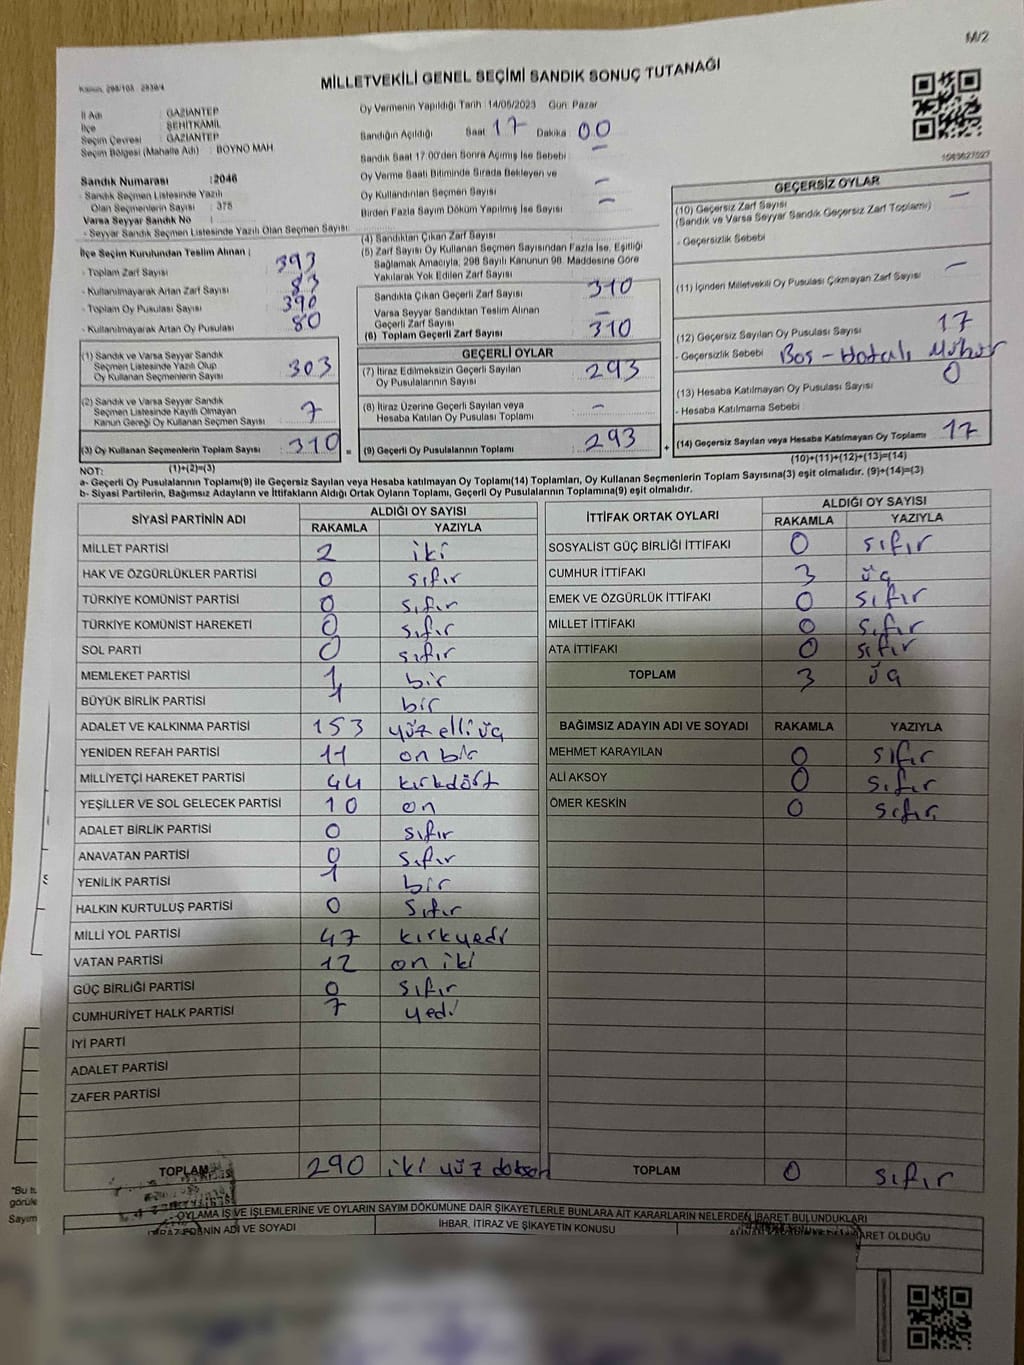 M/2
MİLLETVEKİLİ GENEL SEÇİMİ SANDIK SONUÇ TUTANAĞI
İl Adı : GAZİANTEP
İlçe : ŞEHİTKAMİL
Seçim Çevresi : GAZİANTEP
Seçim Bölgesi (Mahalle Adı) : BOYNO MAH
Sandık Numarası : 2046
- Sandık Seçmen Listesinde Yazılı
Olan Seçmenlerin Sayısı : 375
Varsa Seyyar Sandık No :
- Seyyar Sandık Seçmen Listesinde Yazılı Olan Seçmen Sayısı:
İlçe Seçim Kurulundan Teslim Alınan ;
- Toplam Zarf Sayısı 393
- Kullanılmayarak Artan Zarf Sayısı 83
- Toplam Oy Pusulası Sayısı 390
- Kullanılmayarak Artan Oy Pusulası 80
(1) Sandık ve Varsa Seyyar Sandık
Seçmen Listesinde Yazılı Olup
Oy Kullanan Seçmenlerin Sayısı 303
(2) Sandık ve Varsa Seyyar Sandık
Seçmen Listesinde Kayıtlı Olmayan
Kanun Gereği Oy Kullanan Seçmen Sayısı 7
(3) Oy Kullanan Seçmenlerin Toplam Sayısı 310 =
(1)+(2)=(3)
Oy Vermenin Yapıldığı Tarih :14/05/2023 Gün: Pazar
Sandığın Açıldığı Saat 17 Dakika 00
Sandık Saat 17:00'den Sonra Açımış İse Sebebi –
Oy Verme Saati Bitiminde Sırada Bekleyen ve
Oy Kullandırılan Seçmen Sayısı –
Birden Fazla Sayım Döküm Yapılmış İse Sayısı –
(4) Sandıktan Çıkan Zarf Sayısı
(5) Zarf Sayısı Oy Kullanan Seçmen Sayısından Fazla İse, Eşitliği
Sağlamak Amacıyla, 298 Sayılı Kanunun 98. Maddesine Göre
Yakılarak Yok Edilen Zarf Sayısı
Sandıkta Çıkan Geçerli Zarf Sayısı 310
Varsa Seyyar Sandıktan Teslim Alınan
Geçerli Zarf Sayısı –
(6) Toplam Geçerli Zarf Sayısı 310
GEÇERLİ OYLAR
(7) İtiraz Edilmeksizin Geçerli Sayılan
Oy Pusulalarının Sayısı 293
(8) İtiraz Üzerine Geçerli Sayılan veya
Hesaba Katılan Oy Pusulası Toplamı –
(9) Geçerli Oy Pusulalarının Toplamı 293 +
GEÇERSİZ OYLAR
(10) Geçersiz Zarf Sayısı –
(Sandık ve Varsa Seyyar Sandık Geçersiz Zarf Toplamı)
- Geçersizlik Sebebi
(11) İçinden Milletvekili Oy Pusulası Çıkmayan Zarf Sayısı –
(12) Geçersiz Sayılan Oy Pusulası Sayısı 17
- Geçersizlik Sebebi Boş - Hatalı Mühür
(13) Hesaba Katılmayan Oy Pusulası Sayısı 0
- Hesaba Katılmama Sebebi
(14) Geçersiz Sayılan veya Hesaba Katılmayan Oy Toplamı 17
(10)+(11)+(12)+(13)=(14)
NOT:
a- Geçerli Oy Pusulalarının Toplamı(9) ile Geçersiz Sayılan veya Hesaba katılmayan Oy Toplamı(14) Toplamları, Oy Kullanan Seçmenlerin Toplam Sayısına(3) eşit olmalıdır. (9)+(14)=(3)
b- Siyasi Partilerin, Bağımsız Adayların ve İttifakların Aldığı Ortak Oyların Toplamı, Geçerli Oy Pusulalarının Toplamına(9) eşit olmalıdır.
SİYASİ PARTİNİN ADI ALDIĞI OY SAYISI
RAKAMLA YAZIYLA
MİLLET PARTİSİ 2 iki
HAK VE ÖZGÜRLÜKLER PARTİSİ 0 sıfır
TÜRKİYE KOMÜNİST PARTİSİ 0 sıfır
TÜRKİYE KOMÜNİST HAREKETİ 0 sıfır
SOL PARTİ 0 sıfır
MEMLEKET PARTİSİ 1 bir
BÜYÜK BİRLİK PARTİSİ 1 bir
ADALET VE KALKINMA PARTİSİ 153 yüz elli üç
YENİDEN REFAH PARTİSİ 11 on bir
MİLLİYETÇİ HAREKET PARTİSİ 44 kırkdört
YEŞİLLER VE SOL GELECEK PARTİSİ 10 on
ADALET BİRLİK PARTİSİ 0 sıfır
ANAVATAN PARTİSİ 0 sıfır
YENİLİK PARTİSİ 1 bir
HALKIN KURTULUŞ PARTİSİ 0 sıfır
MİLLİ YOL PARTİSİ 47 kırkyedi
VATAN PARTİSİ 12 on iki
GÜÇ BİRLİĞİ PARTİSİ 0 sıfır
CUMHURİYET HALK PARTİSİ 7 yedi
İYİ PARTİ
ADALET PARTİSİ
ZAFER PARTİSİ
TOPLAM 290 iki yüz doksan
İTTİFAK ORTAK OYLARI ALDIĞI OY SAYISI
RAKAMLA YAZIYLA
SOSYALİST GÜÇ BİRLİĞİ İTTİFAKI 0 sıfır
CUMHUR İTTİFAKI 3 üç
EMEK VE ÖZGÜRLÜK İTTİFAKI 0 sıfır
MİLLET İTTİFAKI 0 sıfır
ATA İTTİFAKI 0 sıfır
TOPLAM 3 üç
BAĞIMSIZ ADAYIN ADI VE SOYADI RAKAMLA YAZIYLA
MEHMET KARAYILAN 0 sıfır
ALİ AKSOY 0 sıfır
ÖMER KESKİN 0 sıfır
TOPLAM 0 sıfır
OYLAMA İŞ VE İŞLEMLERİNE VE OYLARIN SAYIM DÖKÜMÜNE DAİR ŞİKAYETLERLE BUNLARA AİT KARARLARIN NELERDEN İBARET BULUNDUKLARI
ADI VE SOYADI
İHBAR, İTİRAZ VE ŞİKAYETİN KONUSU
OLDUĞU